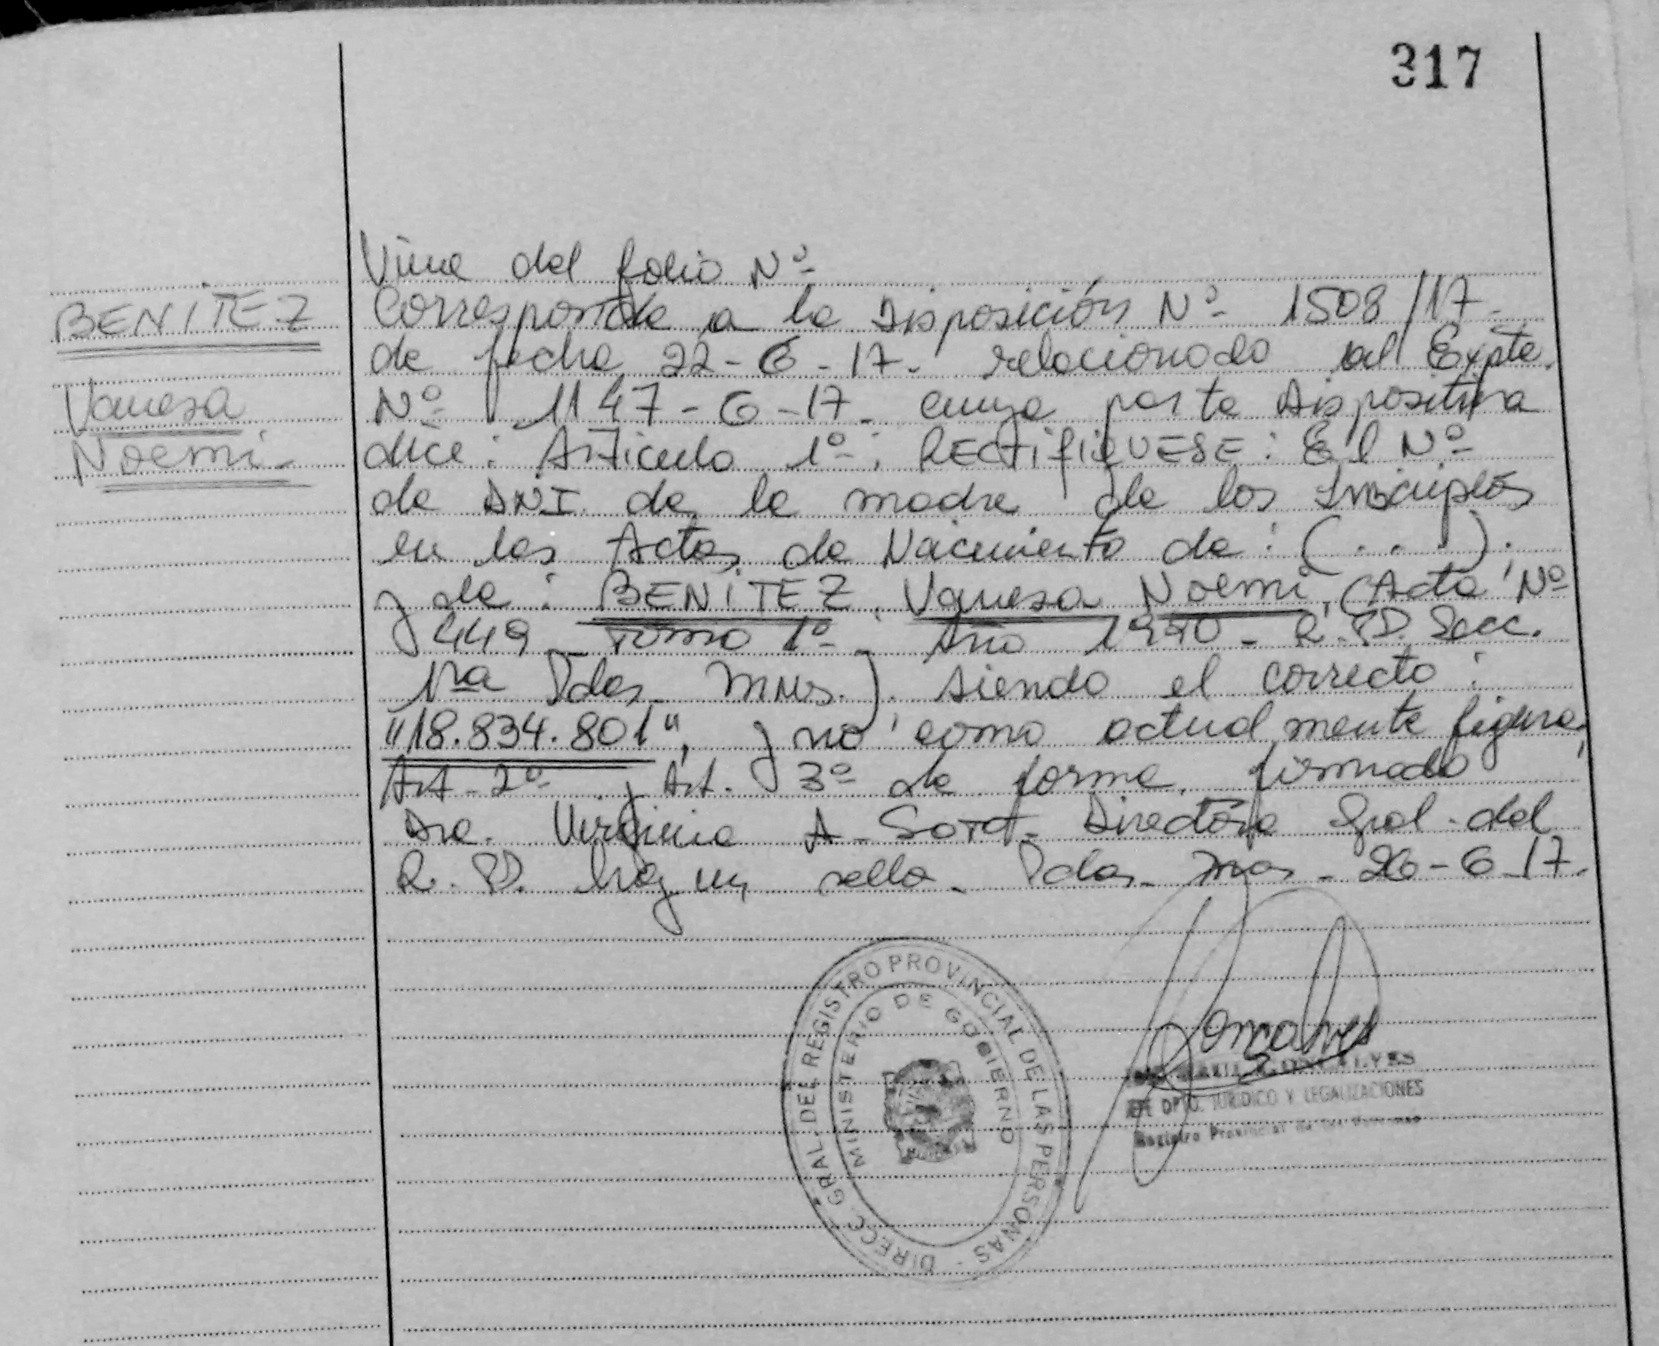 317
Viene del folio Nº
BENITEZ
Vanesa
Noemi-
Corresponde a la Disposición Nº 1508/17-
de fecha 22-6-17- relacionado al Expte.
Nº 1147-6-17- cuya parte dispositiva
dice: Articulo 1º: RECTIFIQUESE: El Nº
de DNI de la madre de los Inscriptos
en las Actas de Nacimiento de: (...).
y de: BENITEZ, Vanesa Noemi, (Acta Nº
449 Tomo 1º - Año 1990- R.P. Secc.
1ra Pdas. Mns.). siendo el correcto:
"18.834.801", y no como actualmente figura,
Art. 2º y Art. 3º de forma, firmado
Dra. Virginia A. Directora Gral. del
R.P. hay un sello. Pdas. Mns. 26-6-17.
DIRECC. GRAL. DEL REGISTRO PROVINCIAL DE LAS PERSONAS -
MINISTERIO DE GOBIERNO
DPTO. JURIDICO Y LEGALIZACIONES
Registro Provincial de las Personas